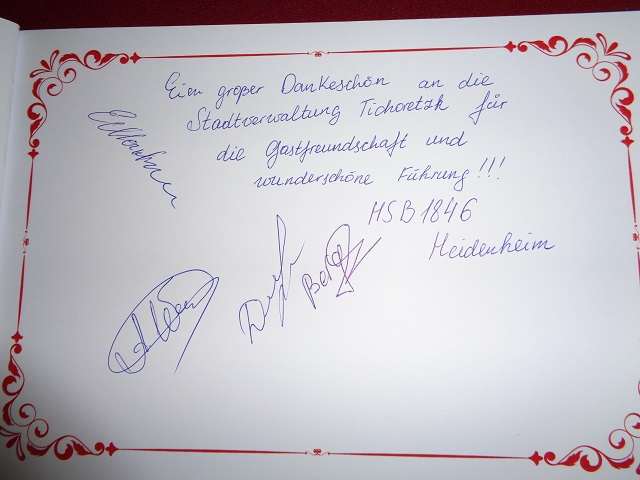 Eien großer Dankeschön an die
Stadtverwaltung Tichoretzk für
die Gastfreundschaft und
wunderschöne Führung!!!
HSB 1846
Heidenheim